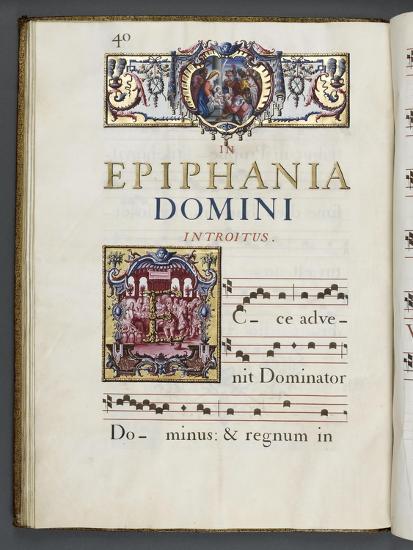 40
IN
EPIPHANIA
DOMINI
INTROITUS.
E
C- ce adve-
nit Dominator
Do- minus: & regnum in